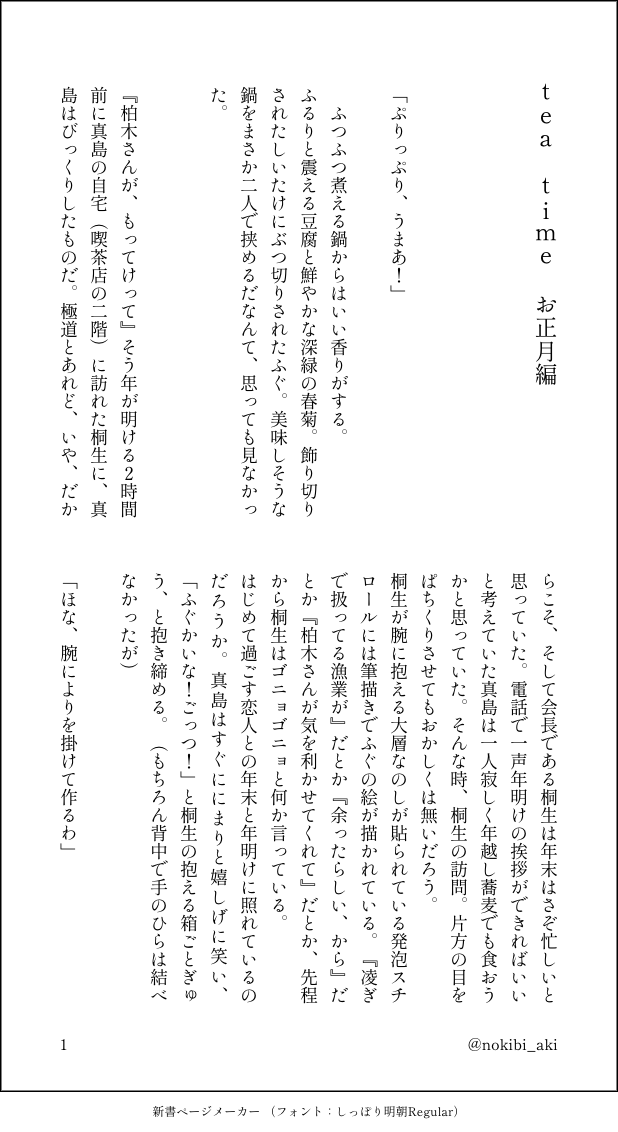 tea time お正月編
「ぷりっぷり、うまあ！」
ふつふつ煮える鍋からはいい香りがする。
ふるりと震える豆腐と鮮やかな深緑の春菊。飾り切り
されたしいたけにぶつ切りされたふぐ。美味しそうな
鍋をまさか二人で挟めるだなんて、思っても見なかっ
た。
『柏木さんが、もってけって』そう年が明ける２時間
前に真島の自宅（喫茶店の二階）に訪れた桐生に、真
島はびっくりしたものだ。極道とあれど、いや、だか
らこそ、そして会長である桐生は年末はさぞ忙しいと
思っていた。電話で一声年明けの挨拶ができればいい
と考えていた真島は一人寂しく年越し蕎麦でも食おう
かと思っていた。そんな時、桐生の訪問。片方の目を
ぱちくりさせてもおかしくは無いだろう。
桐生が腕に抱える大層なのしが貼られている発泡スチ
ロールには筆描きでふぐの絵が描かれている。『凌ぎ
で扱ってる漁業が』だとか『余ったらしい、から』だ
とか『柏木さんが気を利かせてくれて』だとか、先程
から桐生はゴニョゴニョと何か言っている。
はじめて過ごす恋人との年末と年明けに照れているの
だろうか。真島はすぐににまりと嬉しげに笑い、
「ふぐかいな！ごっつ！」と桐生の抱える箱ごとぎゅ
う、と抱き締める。（もちろん背中で手のひらは結べ
なかったが）
「ほな、腕によりを掛けて作るわ」
1
@nokibi_aki
新書ページメーカー （フォント：しっぽり明朝Regular）